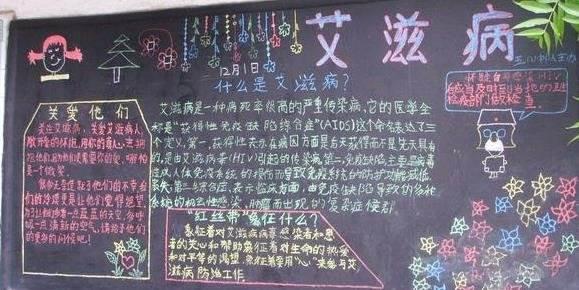 艾滋病
12月1日
什么是艾滋病？
艾滋病是一种病死率很高的严重传染病,它的医学全
称是"获得性免疫缺陷综合症"(AIDS)这个命名表达了三
个定义,第一,获得性表示在病因方面是后天获得而不是先天具有
的,是由艾滋病毒(HIV)引起的传染病,第二,免疫缺陷主要是病毒
造成人体免疫系统的损伤而导致免疫系统的防护功能减低、
丧失,第三,综合症,表示临床方面,由免疫缺陷导致的多种
系统的机会性感染、肿瘤而出现的复杂症候群
"红丝带"象征什么？
象征着对艾滋病病毒感染者和患
者的关心和帮助,象征着对生命的热爱
和对平等的渴望,象征着要用"心"来参与艾
滋病防治工作。
关爱他们
关注艾滋病,关爱艾滋病人,
敞开你的怀抱,用你的真心去拥
抱他们,因为他们需要你的爱,哪怕
是一个微笑。
怀疑自己感染HIV
应当及时到当地的卫生
检疫部门做检查。